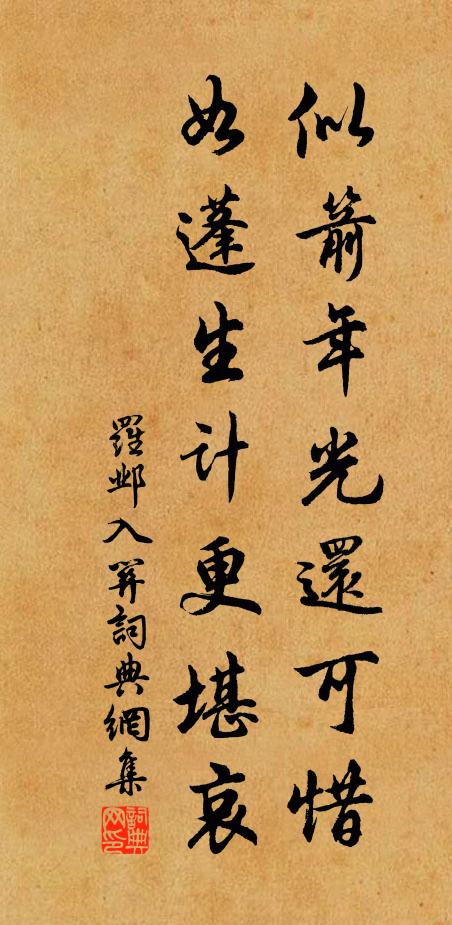 似箭年光還可惜
如蓬生计更堪哀
羅鄴入關詞典網集
詞典网印